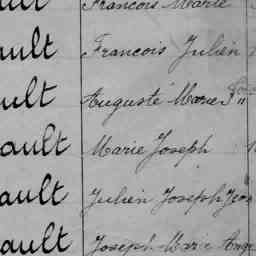 ult François Marie
ault François Julien
ult Auguste Marie
ault Marie Joseph
ault Julien Joseph Jean
ault Joseph Marie Ange